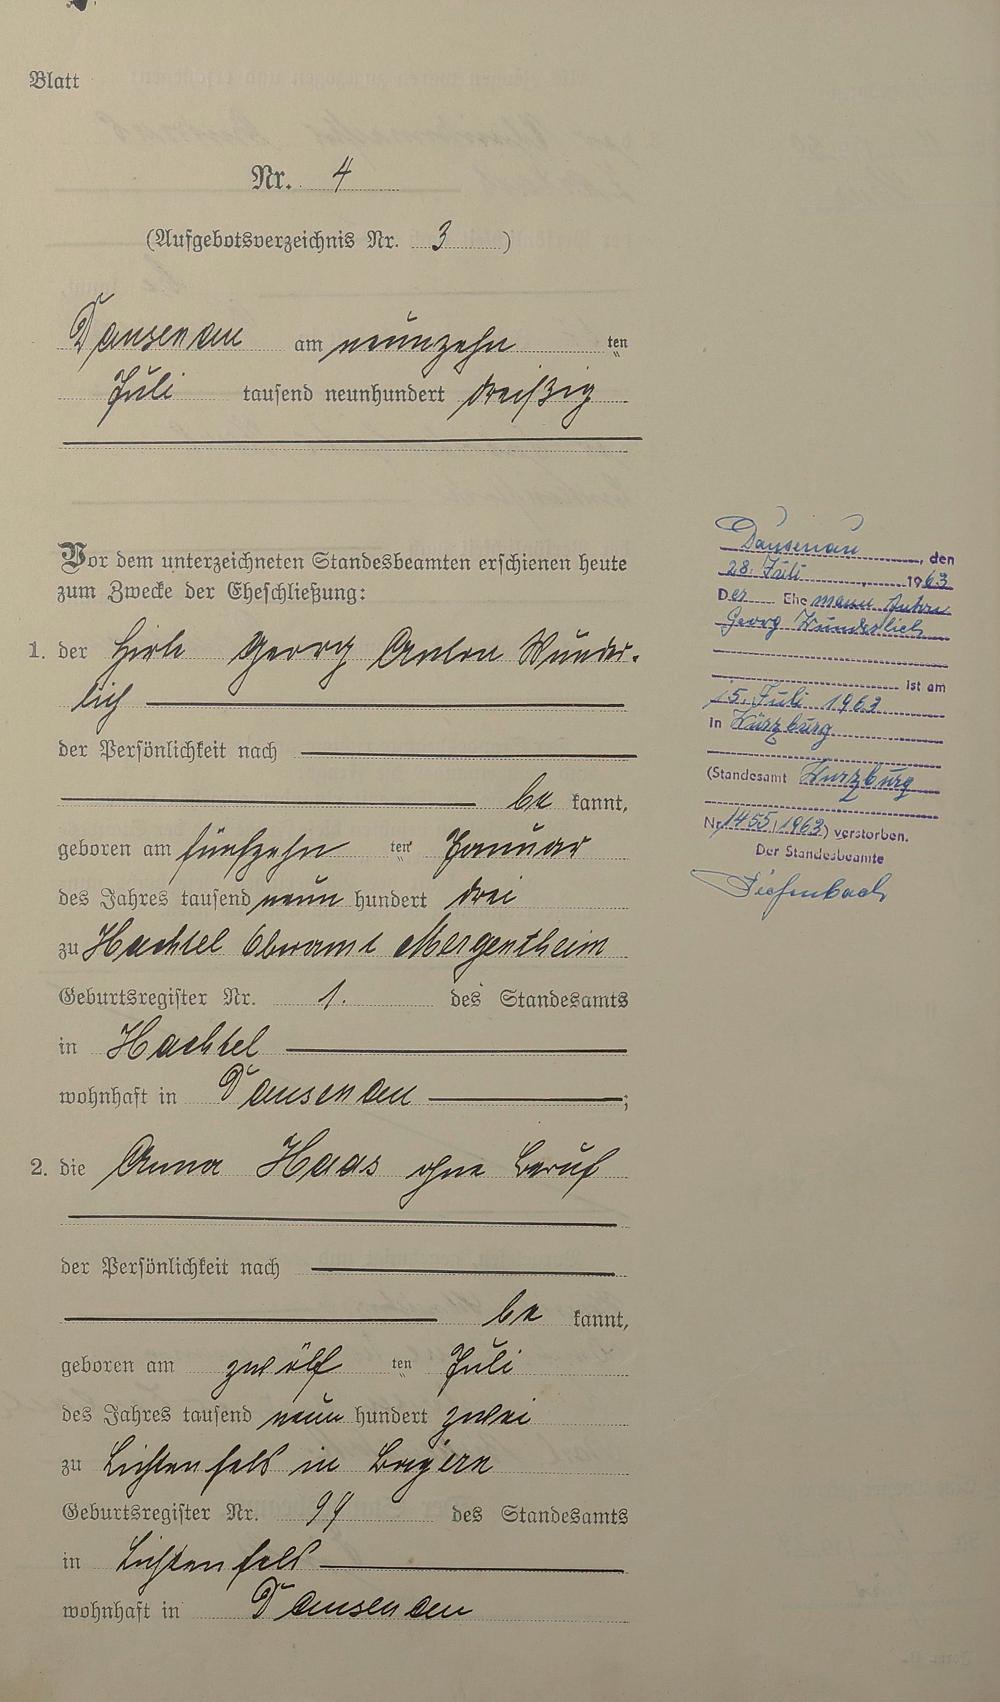 Blatt
Nr. 4
(Aufgebotsverzeichnis Nr. 3)
Dausenau am neunzehn ten
Juli tausend neunhundert dreißig
Vor dem unterzeichneten Standesbeamten erschienen heute
zum Zwecke der Eheschließung:
1. der Hirte Georg Anton Wunder-
lich
der Persönlichkeit nach
be kannt,
geboren am fünfzehn ten Januar
des Jahres tausend neun hundert drei
zu Hachtel Oberamt Mergentheim
Geburtsregister Nr. 1. des Standesamts
in Hachtel
wohnhaft in Dausenau;
2. die Anna Haas ohne Beruf
der Persönlichkeit nach
be kannt,
geboren am zwölf ten Juli
des Jahres tausend neun hundert zwei
zu Lichtenfels in Bayern
Geburtsregister Nr. 99 des Standesamts
in Lichtenfels
wohnhaft in Dausenau
Dausenau, den
28. Juli 1963
Der Ehemann Anton
Georg Wunderlich
ist am
15. Juli 1963
in Würzburg
(Standesamt Würzburg
Nr. 1455/1963) verstorben.
Der Standesbeamte
Diefenbach